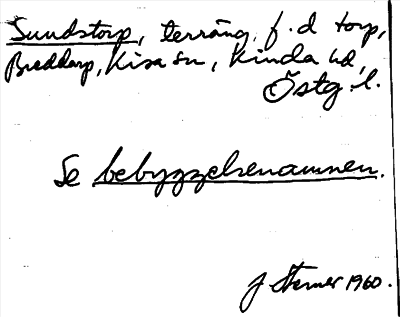 Sundstorp, terräng, f.d torp,
Breddarp, Kisa sn, Kinda hd,
Östg.l.
Se bebyggelsenamnen.
J Sterner 1960.